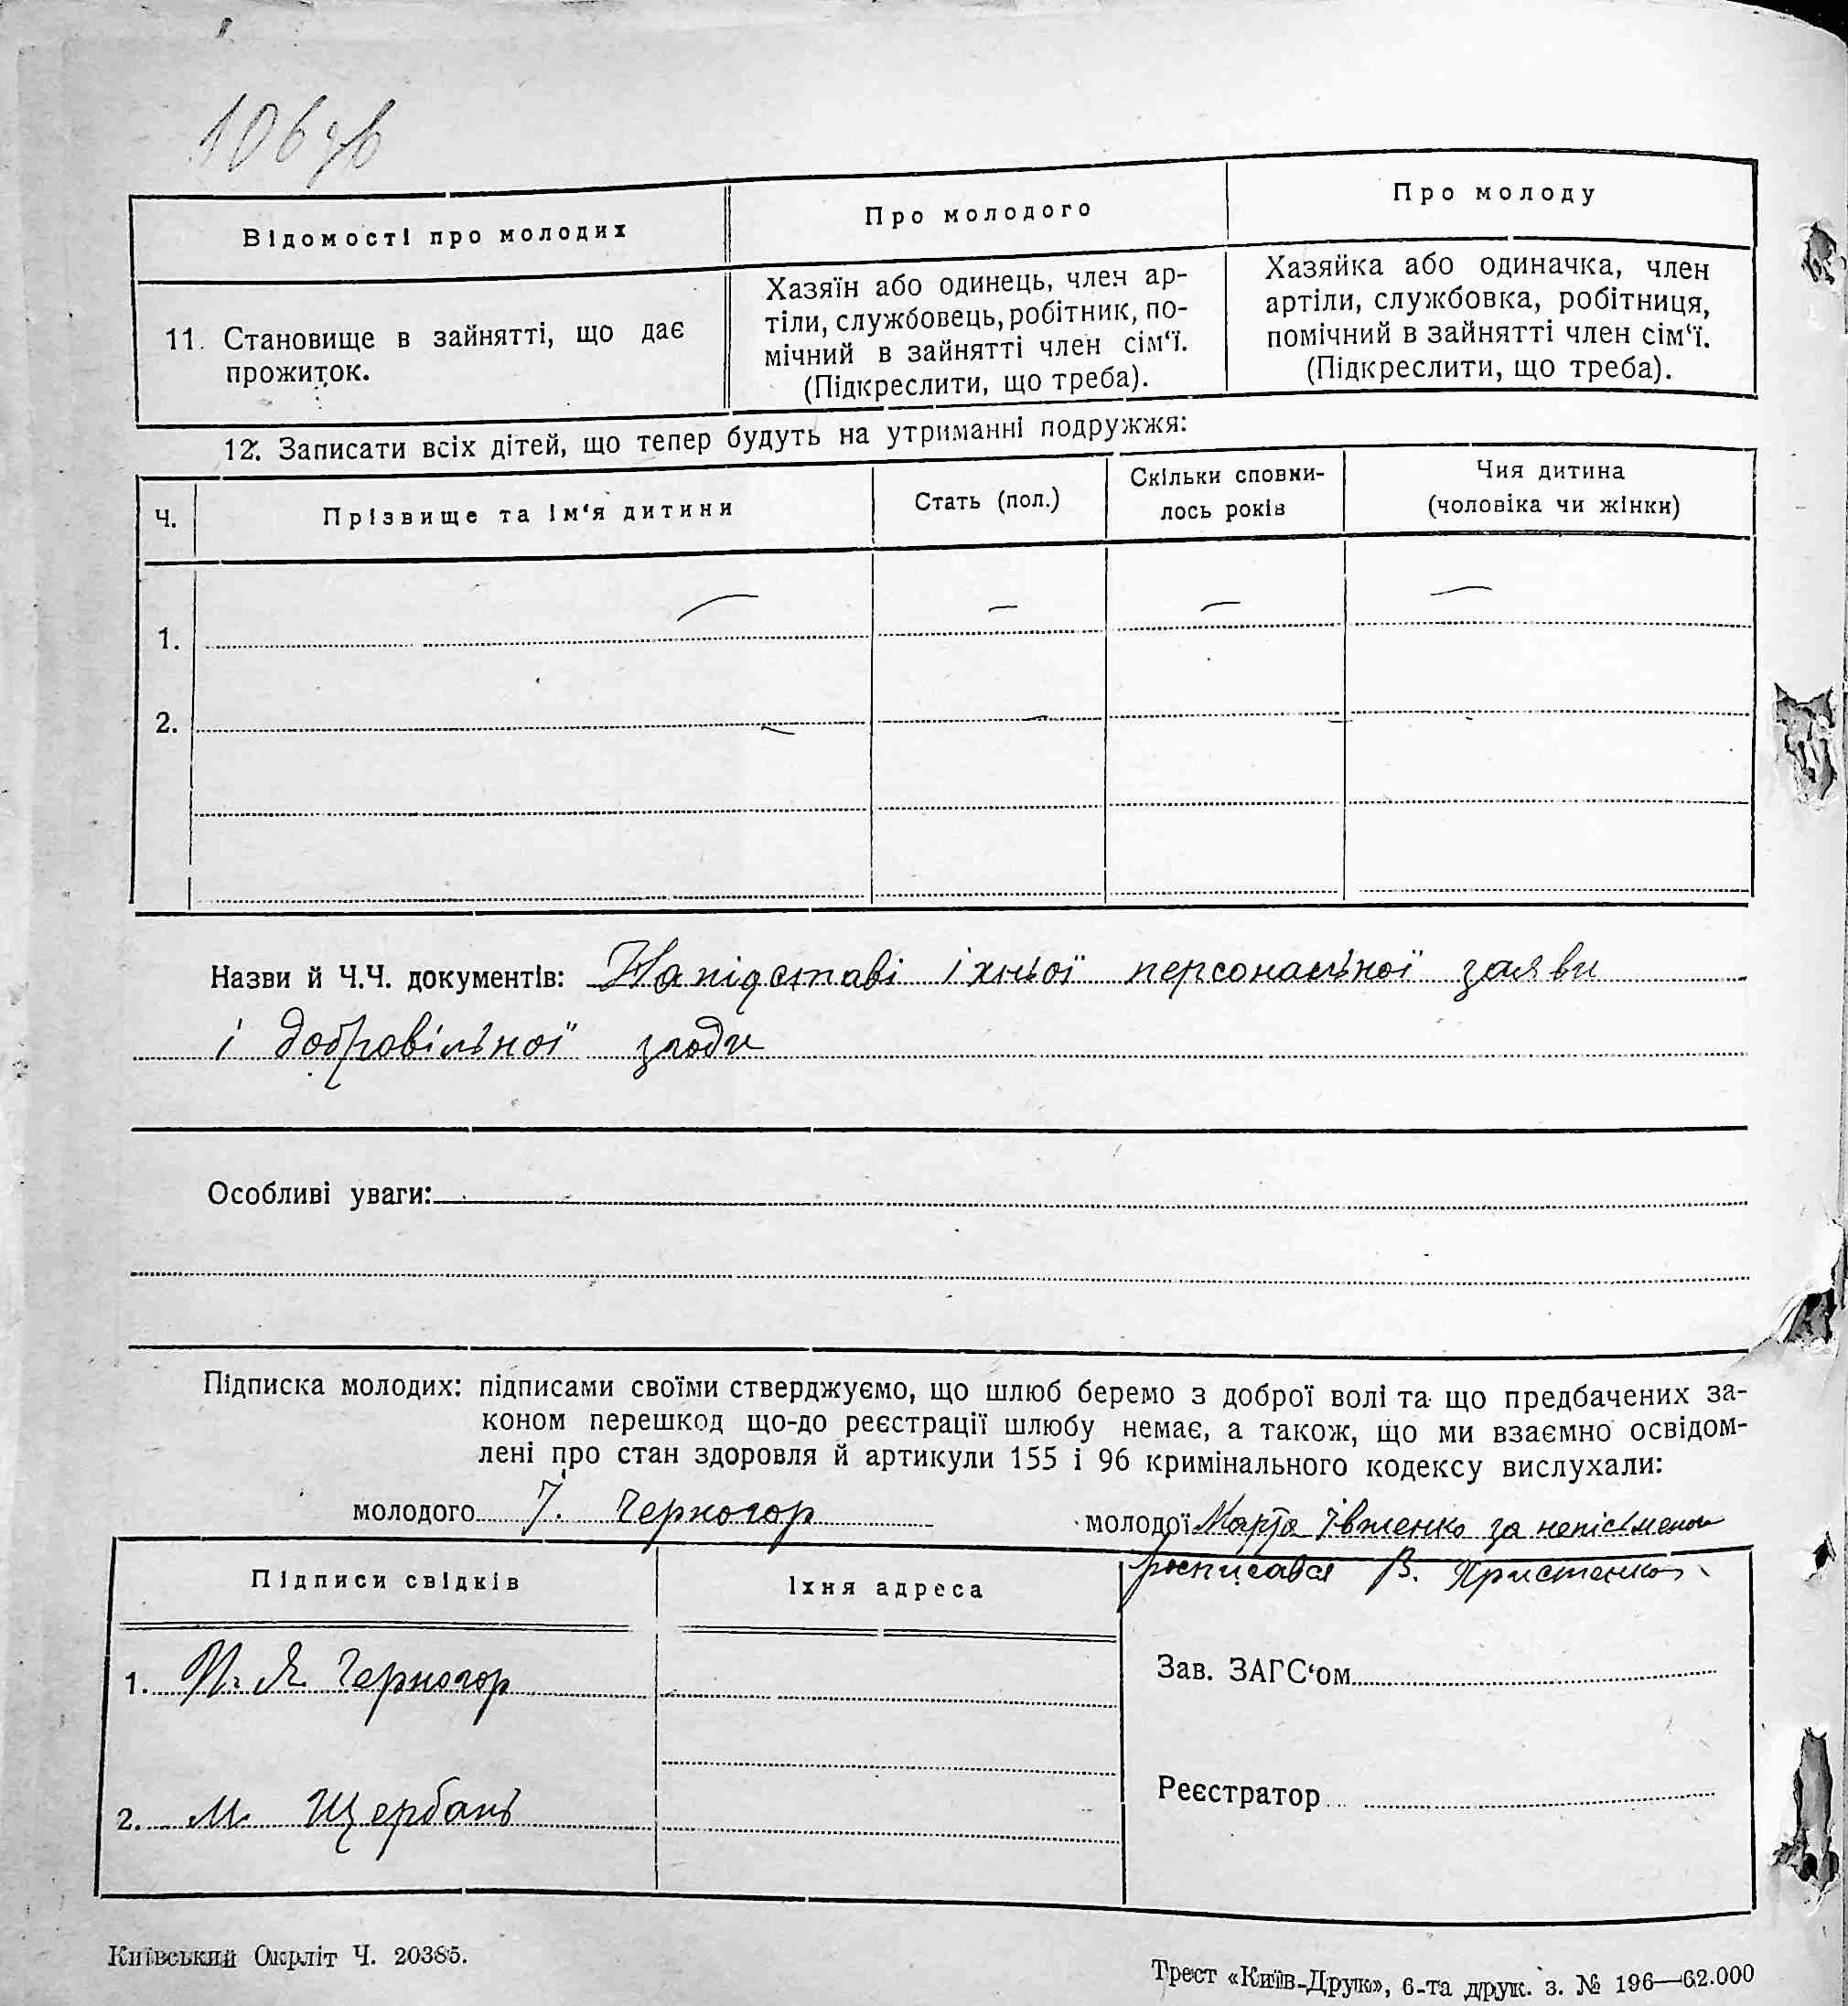 106 зв
Відомості про молодих
Про молодого
Про молоду
11. Становище в зайнятті, що дає
прожиток.
Хазяїн або одинець, член ар-
тіли, службовець, робітник, по-
мічний в зайнятті член сім‘ї.
(Підкреслити, що треба).
Хазяйка або одиначка, член
артіли, службовка, робітниця,
помічний в зайнятті член сім‘ї.
(Підкреслити, що треба).
12. Записати всіх дітей, що тепер будуть на утриманні подружжя:
Ч.
Прізвище та ім‘я дитини
Стать (пол.)
Скільки сповни-
лось років
Чия дитина
(чоловіка чи жінки)
1.
2.
Назви й Ч.Ч. документів: На підставі їхньої персональної заяви
і добровільної згоди
Особливі уваги:
Підписка молодих: підписами своїми стверджуємо, що шлюб беремо з доброї волі та що предбачених за-
коном перешкод що-до реєстрації шлюбу немає, а також, що ми взаємно освідом-
лені про стан здоровля й артикули 155 і 96 кримінального кодексу вислухали:
молодого І. Черногор
молодої Марта Івженко за неписьменою
росписався В. Христенко
Підписи свідків
Їхня адреса
1. Я. Черногор
2. М Щербань
Зав. ЗАГС‘ом
Реєстратор
Київський Окрліт Ч. 20385.
Трест «Київ-Друк», 6-та друк. з. № 196—62.000